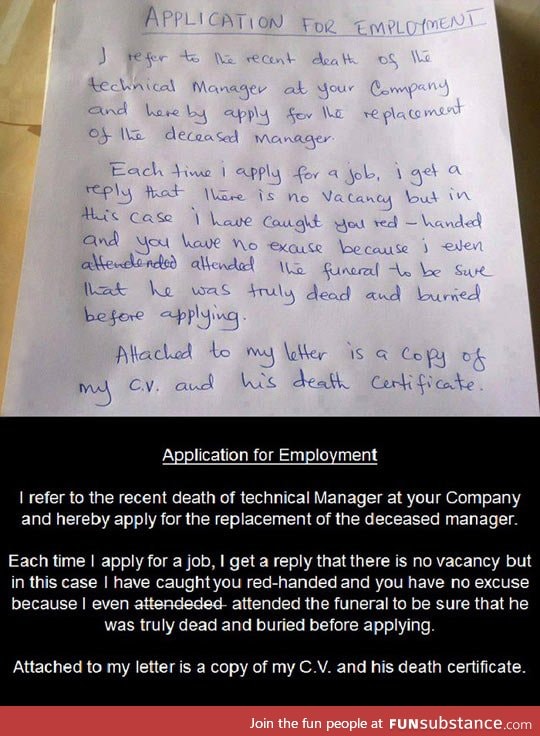 APPLICATION FOR EMPLOYMENT
I refer to the recent death of the
technical Manager at your Company
and hereby apply for the replacement
of the deceased manager.
Each time i apply for a job, i get a
reply that there is no vacancy but in
this case i have caught you red-handed
and you have no excuse because i even
attendended attended the funeral to be sure
that he was truly dead and burried
before applying.
Attached to my letter is a copy of
my C.V. and his death certificate.
Application for Employment
I refer to the recent death of technical Manager at your Company
and hereby apply for the replacement of the deceased manager.
Each time I apply for a job, I get a reply that there is no vacancy but
in this case I have caught you red-handed and you have no excuse
because I even attendeded attended the funeral to be sure that he
was truly dead and buried before applying.
Attached to my letter is a copy of my C.V. and his death certificate.
Join the fun people at FUNsubstance.com